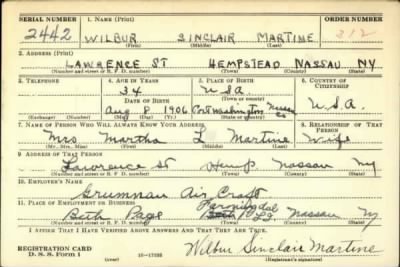 SERIAL NUMBER 1. NAME (Print) ORDER NUMBER
2442 WILBUR SINCLAIR MARTINE 312
(First) (Middle) (Last)
2. ADDRESS (Print)
LAWRENCE ST HEMPSTEAD NASSAU NY
(Number and street or R. F. D. number) (Town) (County) (State)
3. TELEPHONE 4. AGE IN YEARS 5. PLACE OF BIRTH 6. COUNTRY OF CITIZENSHIP
34 USA
DATE OF BIRTH (Town or county)
Aug 8 1906 Port Washington Nassau Co U.S.A.
(Exchange) (Number) (Mo.) (Day) (Yr.) (State or country)
7. NAME OF PERSON WHO WILL ALWAYS KNOW YOUR ADDRESS 8. RELATIONSHIP OF THAT PERSON
Mrs Martha L Martine Wife
(Mr., Mrs., Miss) (First) (Middle) (Last)
9. ADDRESS OF THAT PERSON
Lawrence St Hemp Nassau Ny
(Number and street or R. F. D. number) (Town) (County) (State)
10. EMPLOYER'S NAME
Grumman Air Craft
11. PLACE OF EMPLOYMENT OR BUSINESS
Farmingdal
Beth Page L.I. Nassau Ny
(Number and street or R. F. D. number) (Town) (County) (State)
I AFFIRM THAT I HAVE VERIFIED ABOVE ANSWERS AND THAT THEY ARE TRUE.
REGISTRATION CARD
D. S. S. Form 1 Wilbur Sinclair Martine
(over) (Registrant's signature)